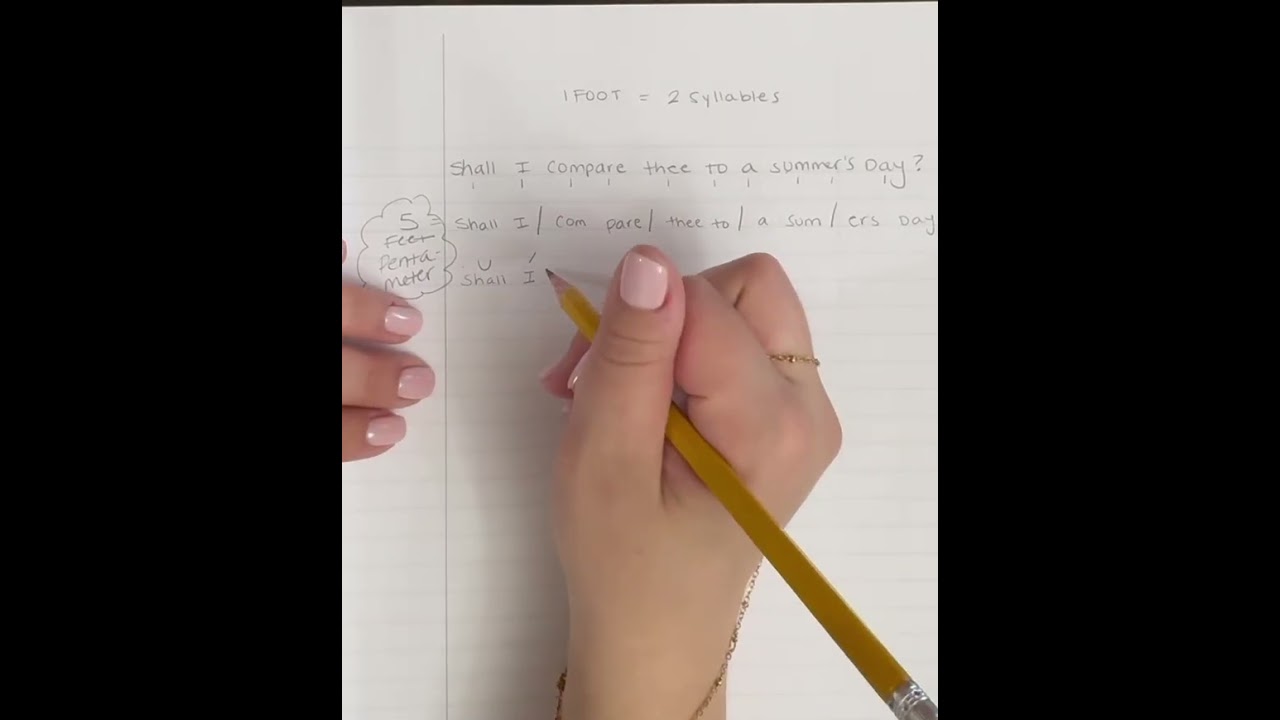 1 FOOT = 2 Syllables
Shall I compare thee to a summer's Day?
5 = Shall I / com pare / thee to / a sum / ers Day
Feet
Penta-
meter
∪ /
Shall I